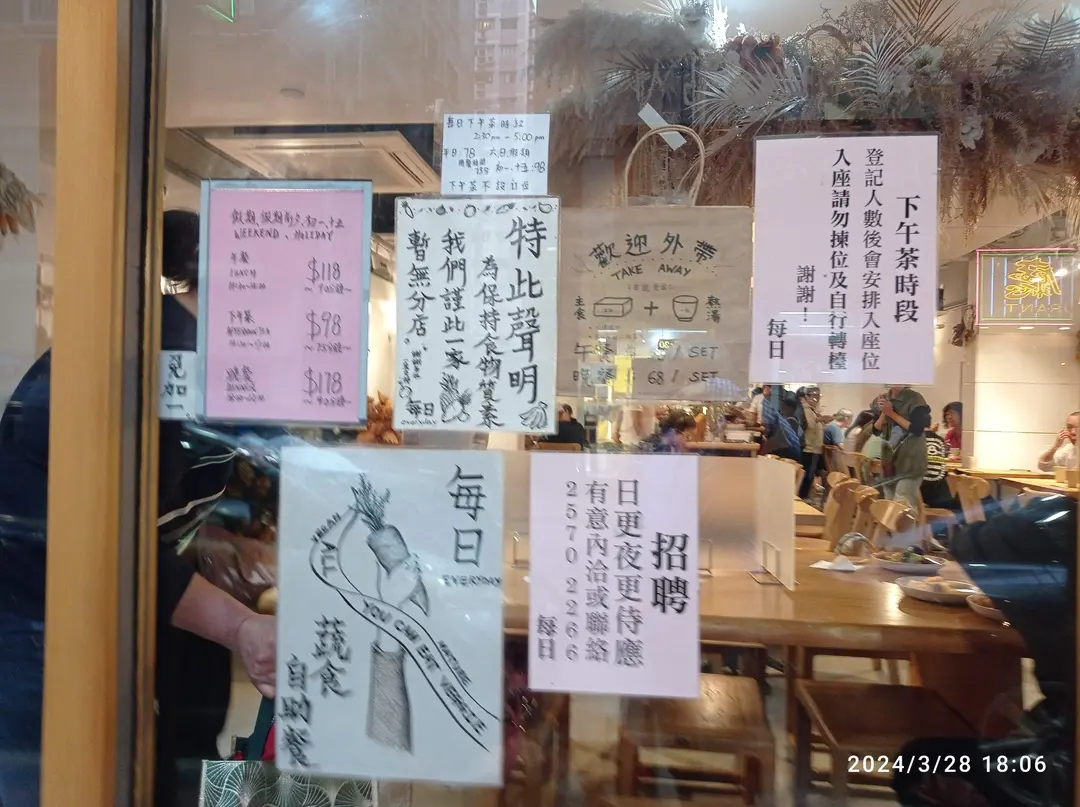 每日下午茶時段
2:30pm - 5:00pm
平日 78 六日假期
初一、十五 :98
下午茶不設訂位
假期,假期前夕,初一、十五
WEEKEND、HOLIDAY
午餐
LUNCH
$118
下午茶
$98
晚餐
$178
特此聲明
為保持食物質素
我們謹此一家
暫無分店。
每日
everyday
歡迎外帶
TAKE AWAY
主食
+
熱湯
午餐
/ SET
晚餐
68 / SET
下午茶時段
登記人數後會安排入座位
入座請勿揀位及自行轉檯
謝謝!
每日
每日
EVERYDAY
YEAH
YOU CAN EAT VEGGIE
蔬食
自助餐
招聘
日更夜更侍應
有意內洽或聯絡
2570 2266
每日
2024/3/28 18:06